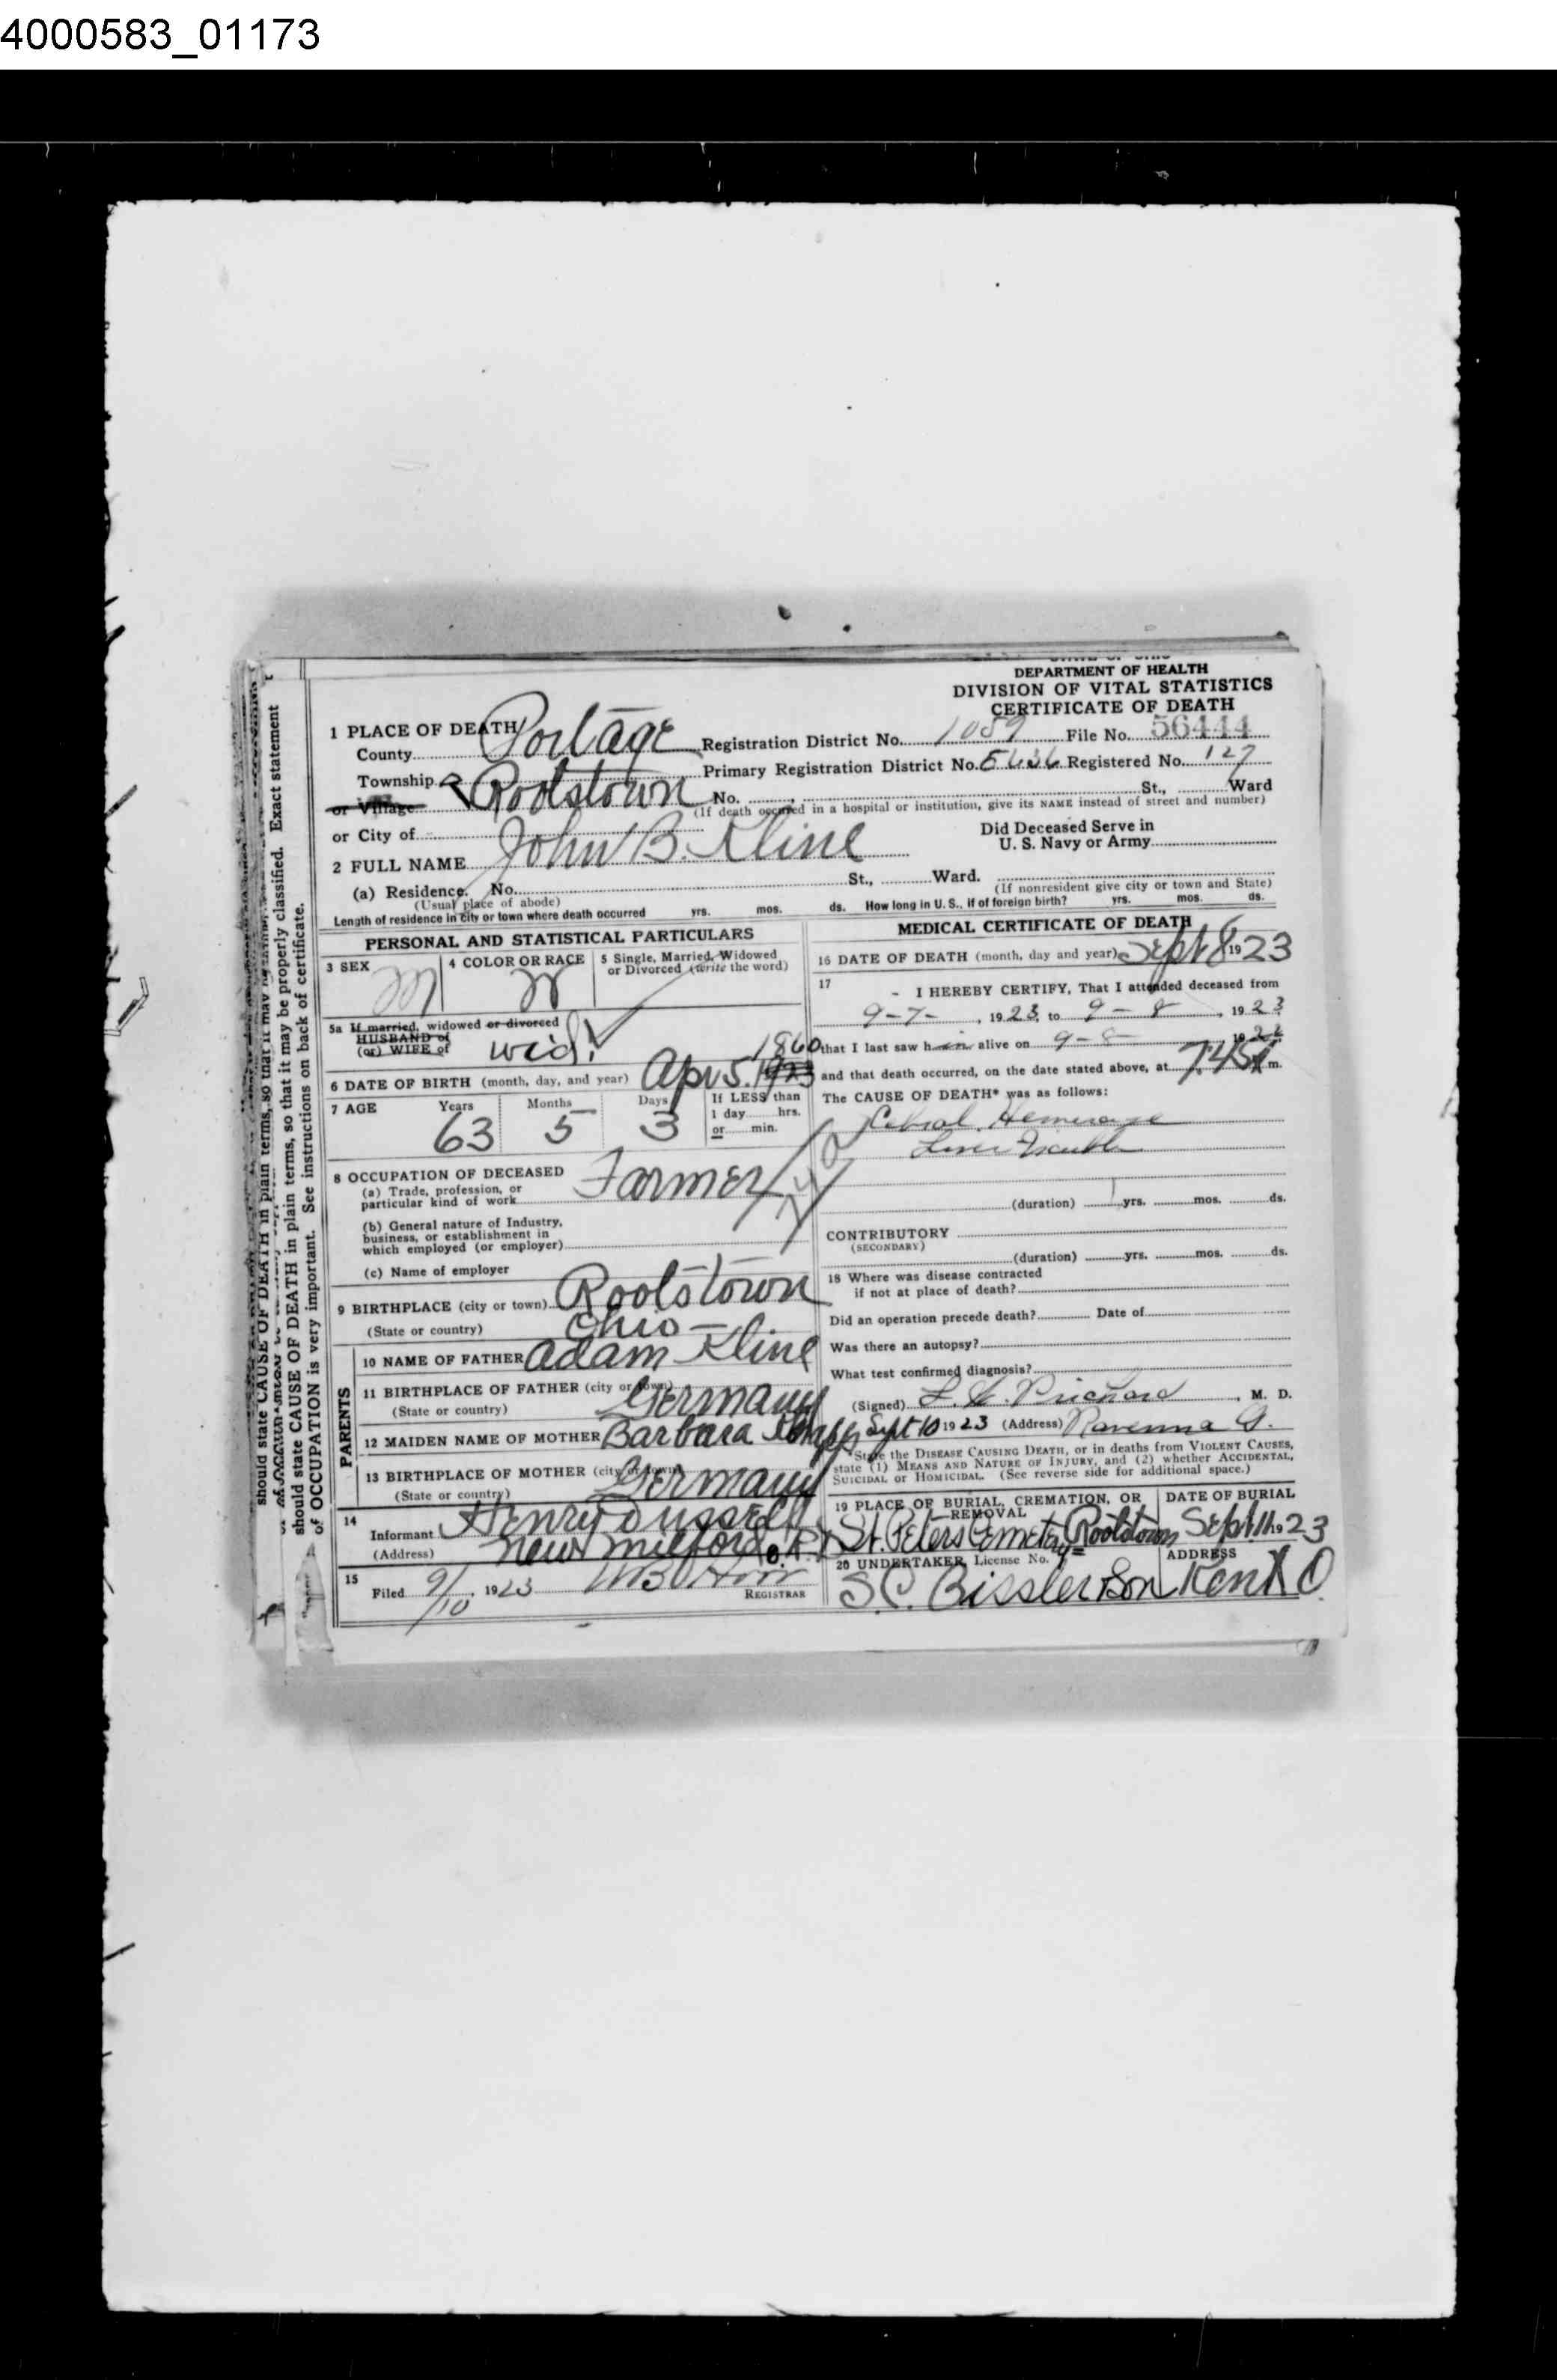 4000583_01173
DEPARTMENT OF HEALTH
DIVISION OF VITAL STATISTICS
CERTIFICATE OF DEATH
1 PLACE OF DEATH
County Portage Registration District No. 1089 File No. 56444
Township Rootstown Primary Registration District No. Registered No. 127
or Village No. St., Ward
(If death occurred in a hospital or institution, give its NAME instead of street and number)
or City of Did Deceased Serve in
2 FULL NAME John B. Kline U. S. Navy or Army
(a) Residence. No. St., Ward.
(Usual place of abode) (If nonresident give city or town and State)
Length of residence in city or town where death occurred yrs. mos. ds. How long in U. S., if of foreign birth? yrs. mos. ds.
PERSONAL AND STATISTICAL PARTICULARS
3 SEX 4 COLOR OR RACE 5 Single, Married, Widowed
or Divorced (write the word)
M W
5a If married, widowed or divorced
HUSBAND of
(or) WIFE of wid.
1860
6 DATE OF BIRTH (month, day, and year) Apr 5. 1923
7 AGE Years Months Days If LESS than
1 day hrs.
or min.
63 5 3
8 OCCUPATION OF DECEASED
(a) Trade, profession, or
particular kind of work Farmer
(b) General nature of Industry,
business, or establishment in
which employed (or employer)
(c) Name of employer
9 BIRTHPLACE (city or town) Rootstown
(State or country) Ohio
PARENTS
10 NAME OF FATHER Adam Kline
11 BIRTHPLACE OF FATHER (city or town)
(State or country) Germany
12 MAIDEN NAME OF MOTHER Barbara
13 BIRTHPLACE OF MOTHER (city or town)
(State or country) Germany
14
Informant Henry Dussell
(Address) New Milford O.
15
Filed 9/10, 1923
REGISTRAR
MEDICAL CERTIFICATE OF DEATH
16 DATE OF DEATH (month, day and year) Sept 8 1923
17
I HEREBY CERTIFY, That I attended deceased from
9-7-, 1923, to 9-8, 1923
that I last saw h im alive on 9-8 19
and that death occurred, on the date stated above, at 7:45 m.
The CAUSE OF DEATH* was as follows:
Cebral Hemerage
Liver Trouble
(duration) yrs. mos. ds.
CONTRIBUTORY
(SECONDARY)
(duration) yrs. mos. ds.
18 Where was disease contracted
if not at place of death?
Did an operation precede death? Date of
Was there an autopsy?
What test confirmed diagnosis?
(Signed) Prichard, M. D.
Sept 10 1923 (Address) Ravenna O.
*State the DISEASE CAUSING DEATH, or in deaths from VIOLENT CAUSES,
state (1) MEANS AND NATURE OF INJURY, and (2) whether ACCIDENTAL,
SUICIDAL or HOMICIDAL. (See reverse side for additional space.)
19 PLACE OF BURIAL, CREMATION, OR DATE OF BURIAL
REMOVAL
St. Peters Cemetery Rootstown Sept 11 1923
20 UNDERTAKER, License No. ADDRESS
S.C. Bissler & Son Kent O
should state CAUSE OF DEATH in plain terms, so that it may be properly classified. Exact statement
of OCCUPATION is very important. See instructions on back of certificate.